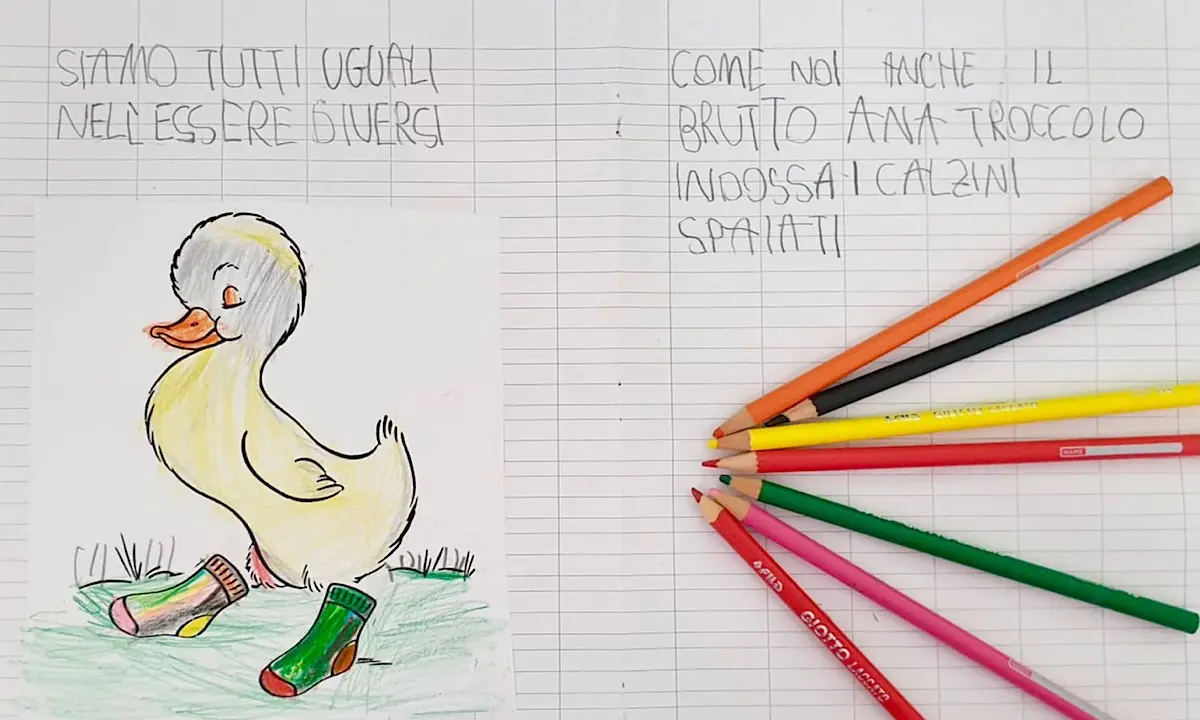 SIAMO TUTTI UGUALI
NELL'ESSERE DIVERSI
COME NOI ANCHE IL
BRUTTO ANATROCCOLO
INDOSSA I CALZINI
SPAIATI
GIOTTO LACCATO